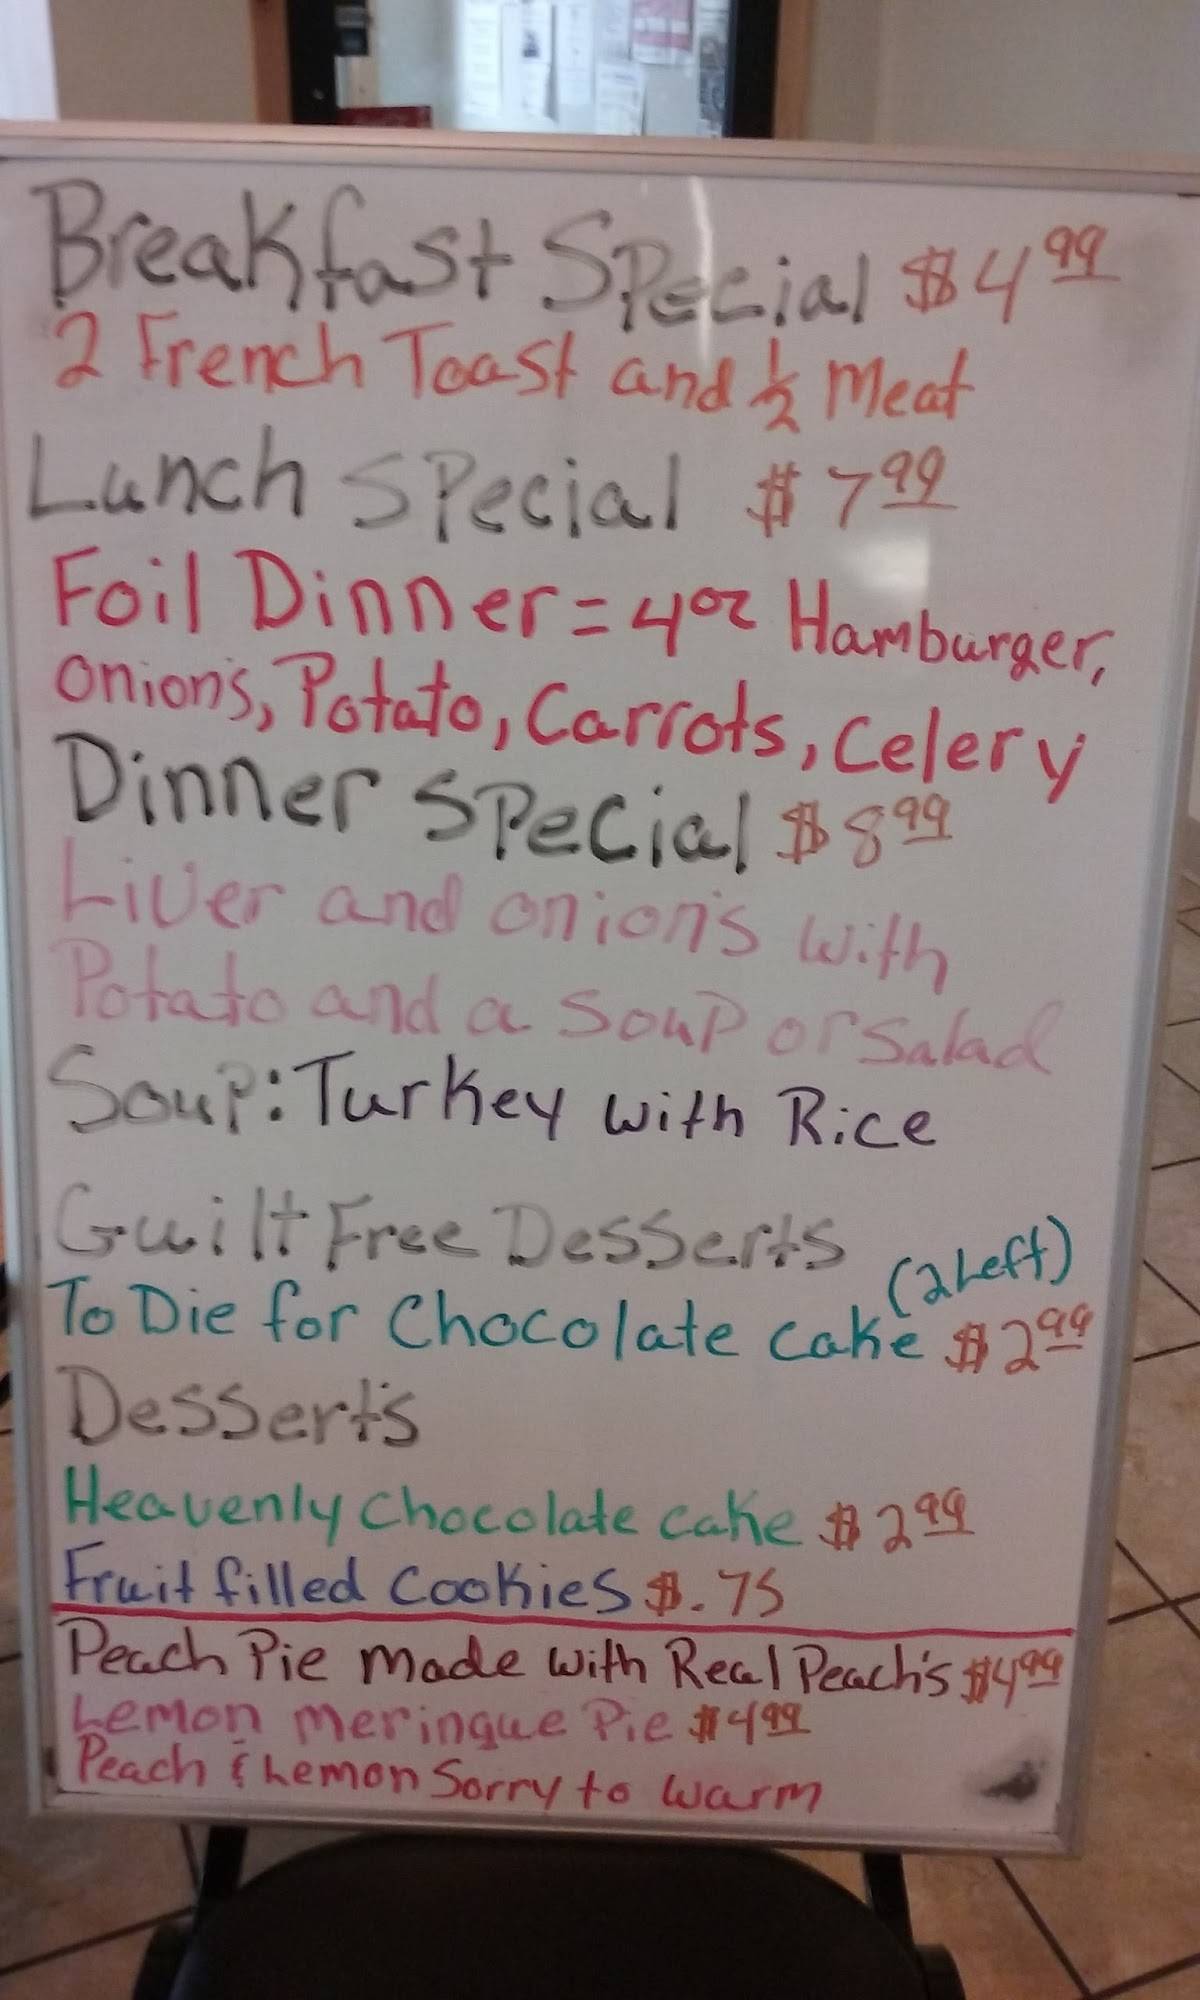 Breakfast Special $4.99
2 French Toast and ½ Meat
Lunch Special $7.99
Foil Dinner = 4oz Hamburger,
Onion's, Potato, Carrots, Celery
Dinner Special $8.99
Liver and onion's with
Potato and a Soup or Salad
Soup: Turkey with Rice
Guilt Free Dessert's
To Die for Chocolate cake (2 Left) $2.99
Dessert's
Heavenly Chocolate cake $2.99
Fruit filled Cookies $.75
Peach Pie made with Real Peach's $4.99
Lemon Meringue Pie $4.99
Peach & Lemon Sorry to warm